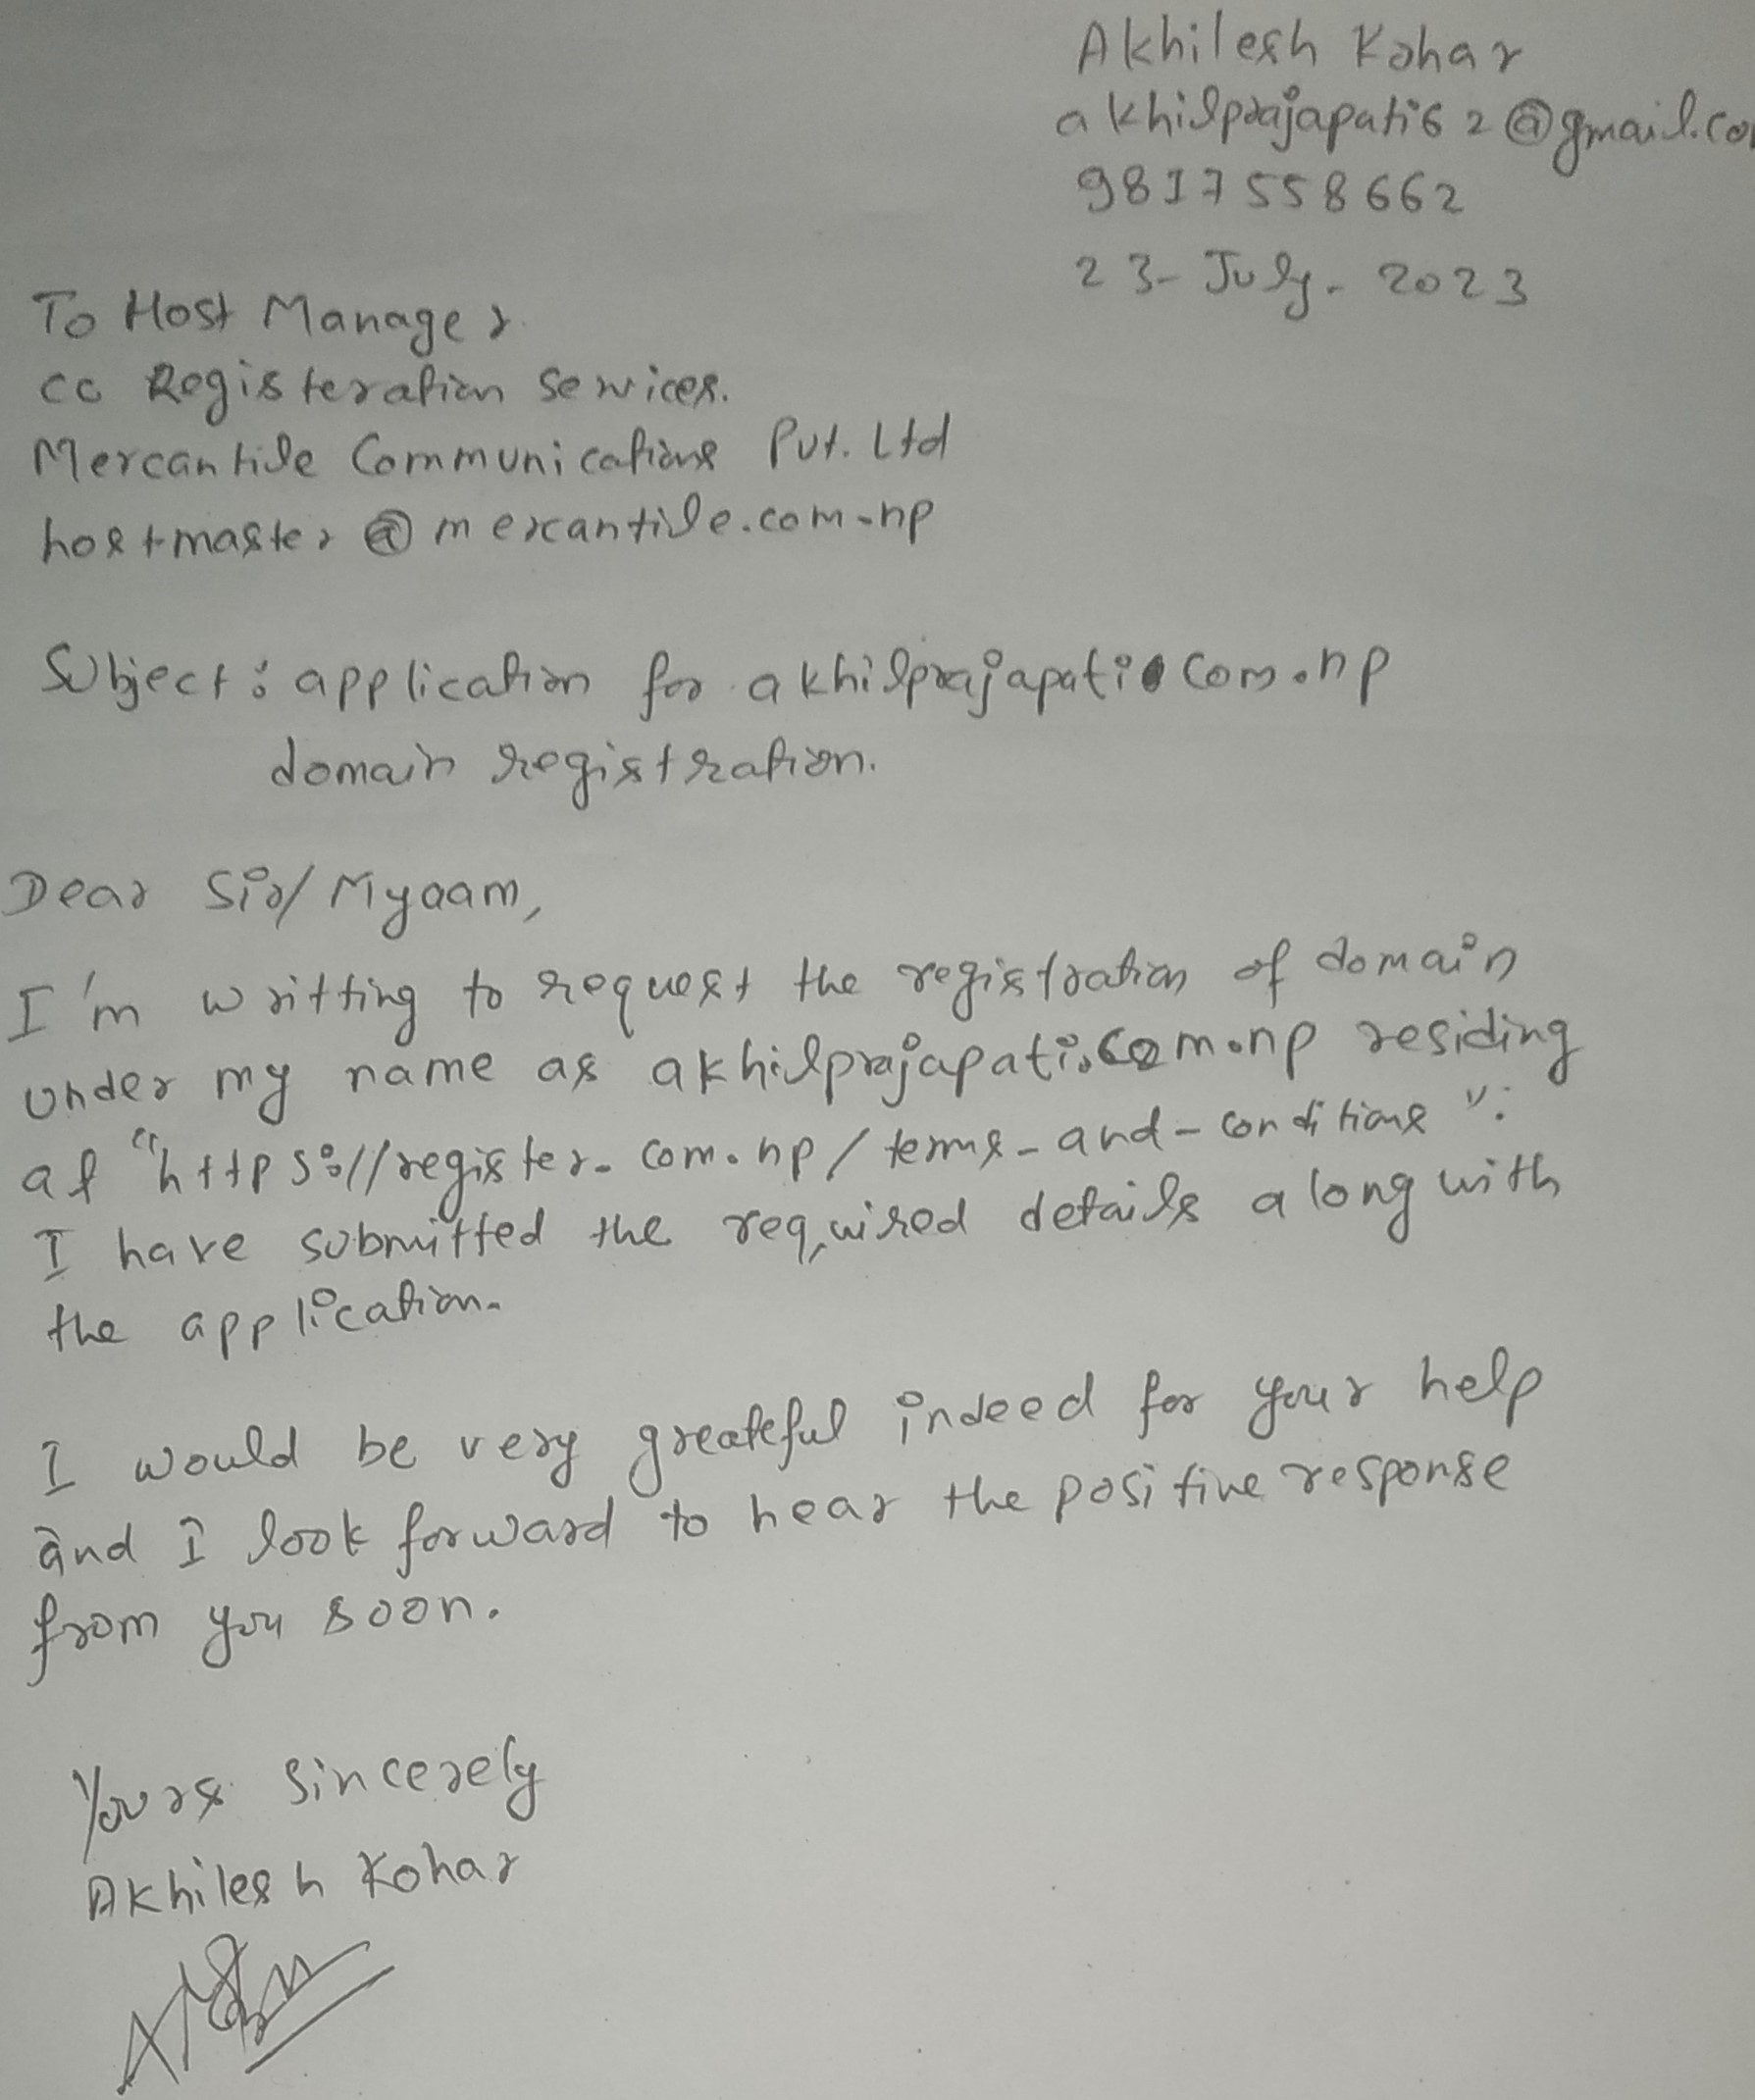 Akhilesh Kohar
akhilprajapati62@gmail.co
9817558662
23-July-2023
To Host Manager
cc Registeration Services.
Mercantile Communications Pvt. Ltd
hostmaster@mercantile.com.np
Subject: application for akhilprajapati.com.np
domain registration.
Dear Sir/Myaam,
I'm writting to request the registration of domain
under my name as akhilprajapati.com.np residing
at "https://register.com.np/terms-and-conditions".
I have submitted the required details along with
the application.
I would be very greateful indeed for your help
and I look forward to hear the positive response
from you soon.
Yours sincerely
Akhilesh Kohar